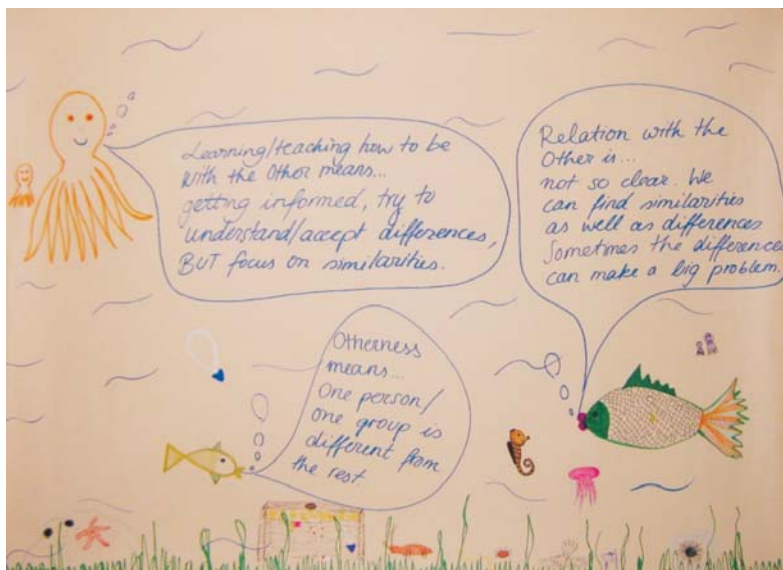 Learning/teaching how to be
with the Other means...
getting informed, try to
understand/accept differences,
BUT focus on similarities.
Relation with the
Other is...
not so clear. We
can find similarities
as well as differences
Sometimes the differences
can make a big problem.
Otherness
means...
One person/
one group is
different from
the rest.